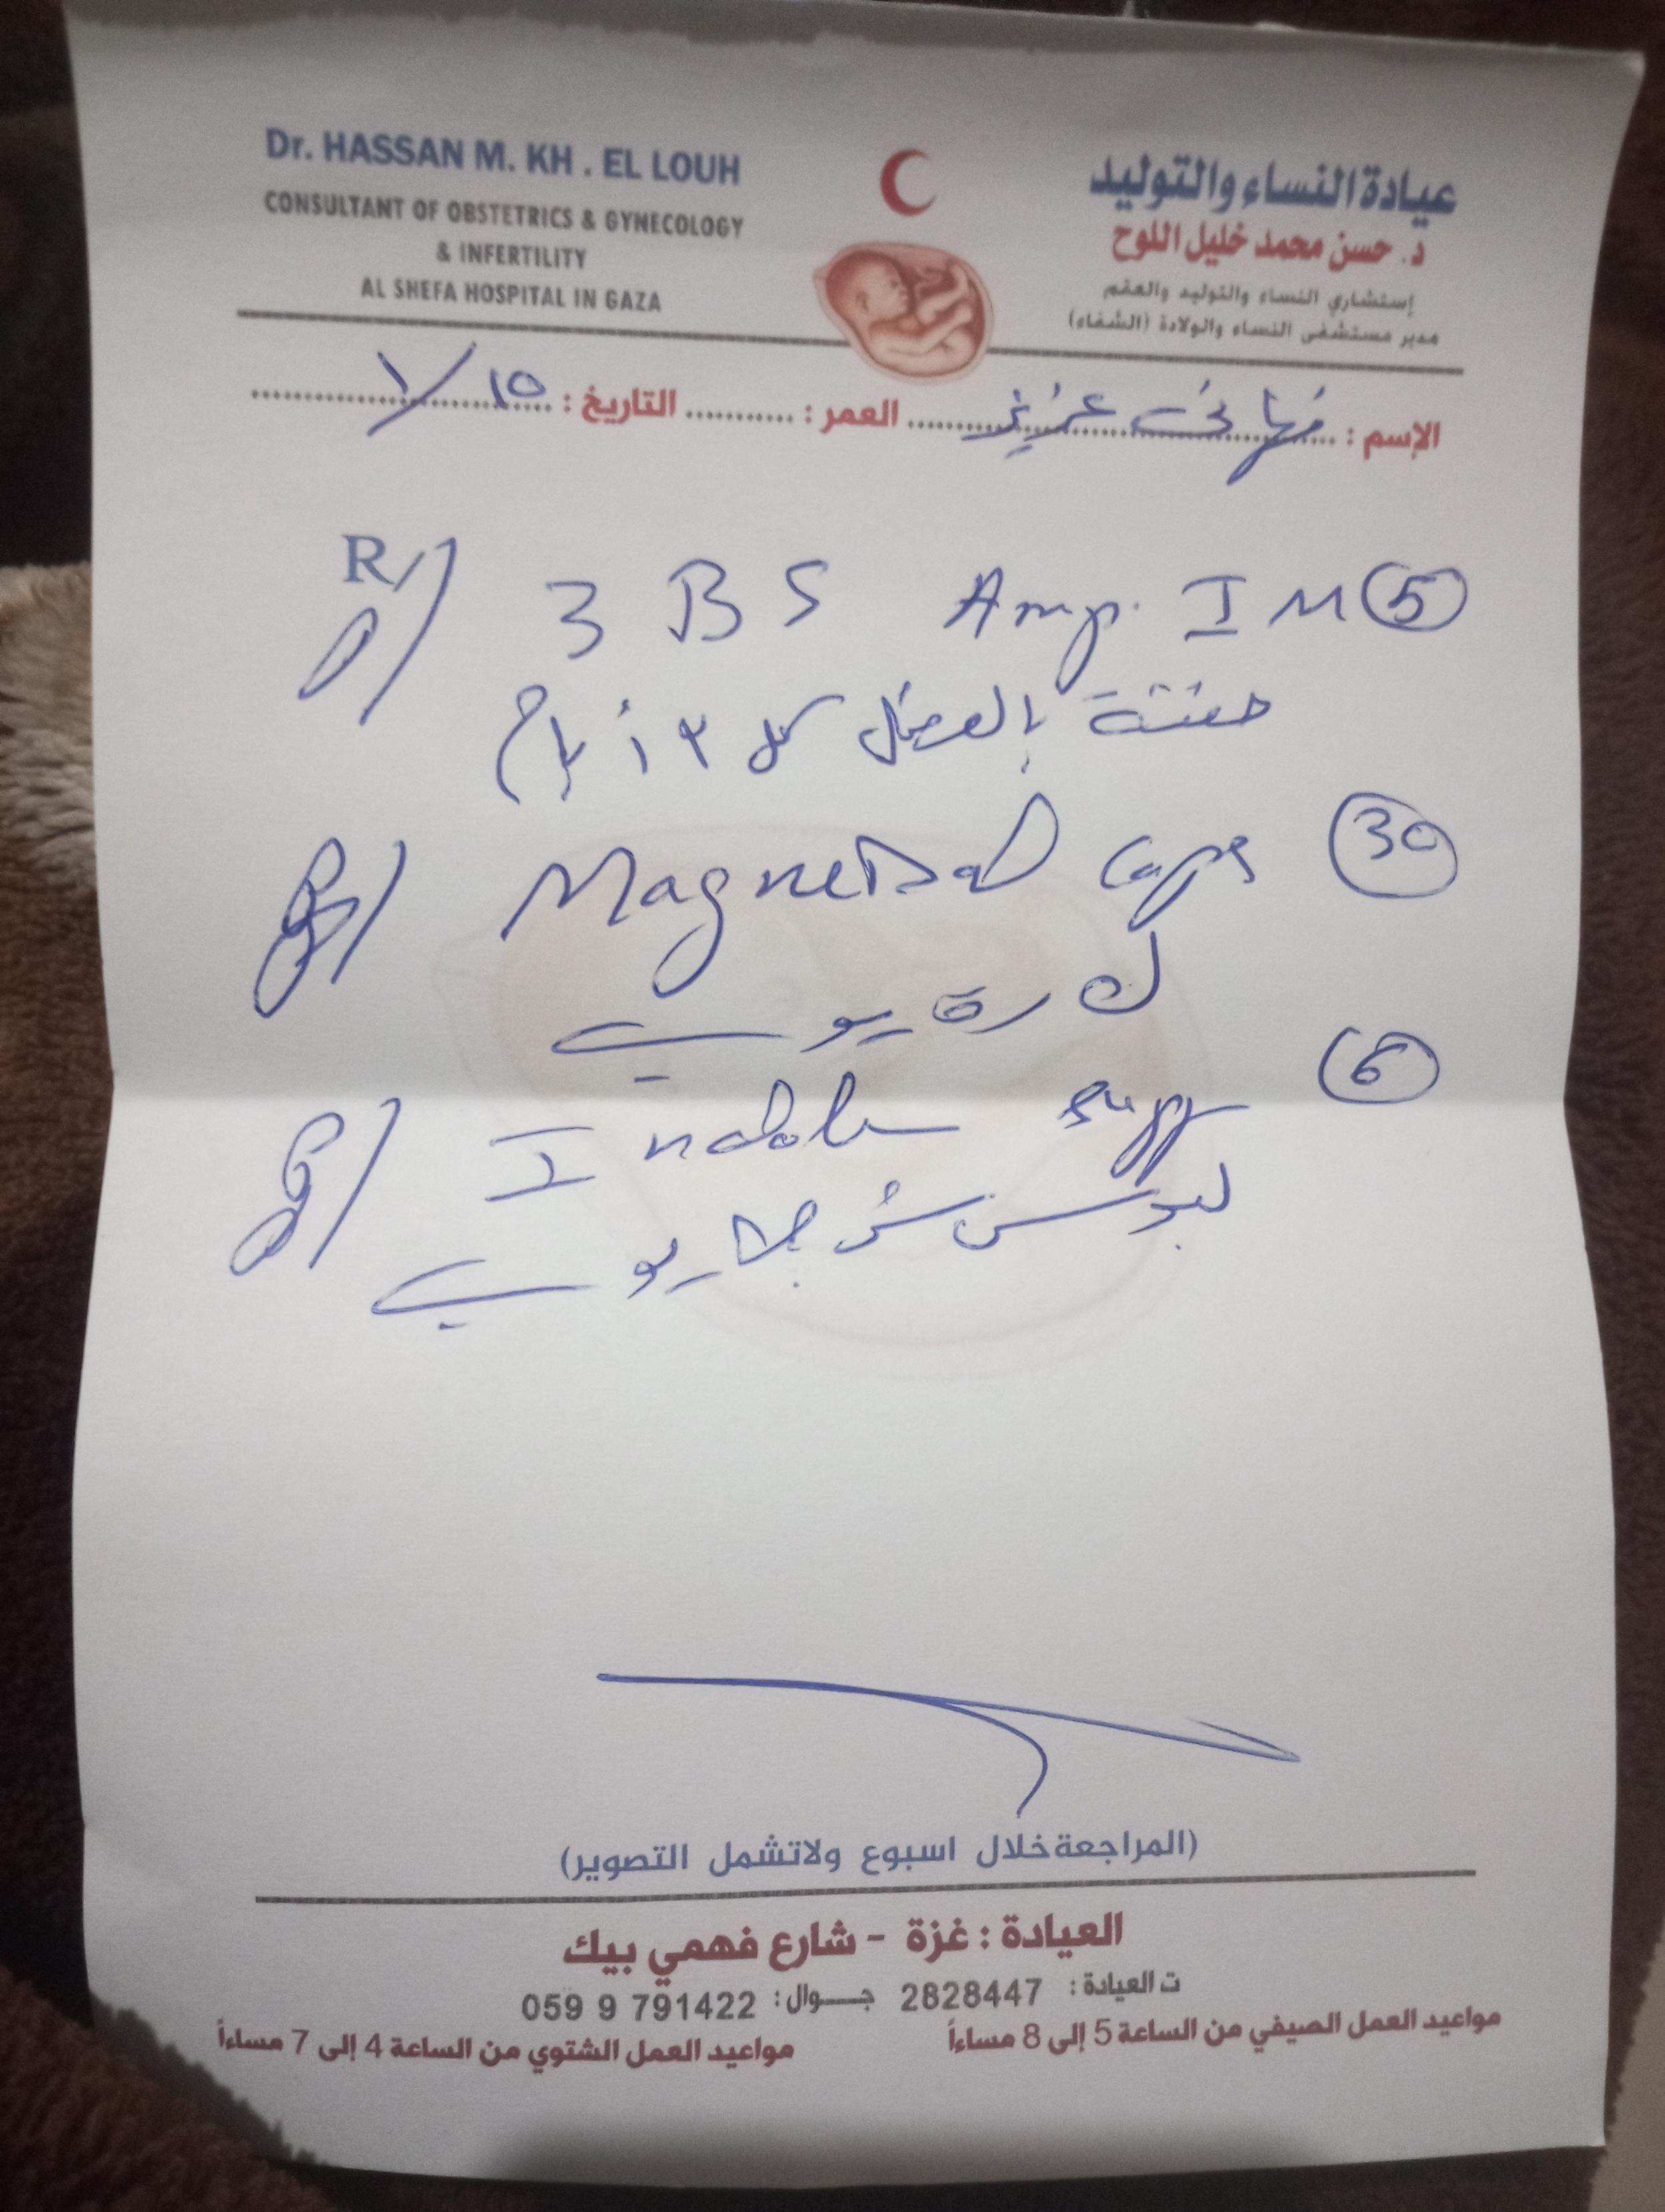 Dr. HASSAN M. KH . EL LOUH
CONSULTANT OF OBSTETRICS & GYNECOLOGY
& INFERTILITY
AL SHEFA HOSPITAL IN GAZA
عيادة النساء والتوليد
د. حسن محمد خليل اللوح
إستشاري النساء والتوليد والعقم
مدير مستشفى النساء والولادة (الشفاء)
الإسم : العمر : التاريخ : ١٥/١
R/ 3 BS Amp. IM 5
حقنة بالعضل كل ٣ أيام
caps 30
يوميا
supp 6
لبوس شرجي يوميا
(المراجعة خلال اسبوع ولاتشمل التصوير)
العيادة : غزة - شارع فهمي بيك
ت العيادة : 2828447 جـوال : 059 9 791422
مواعيد العمل الصيفي من الساعة 5 إلى 8 مساءاً
مواعيد العمل الشتوي من الساعة 4 إلى 7 مساءاً